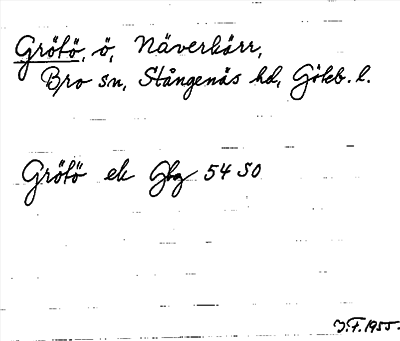 Grötö, ö, Näverkärr,
Bro sn, Stångenäs hd, Göteb. l.
Grötö ek Gbg 54 SO
J.F. 1955.